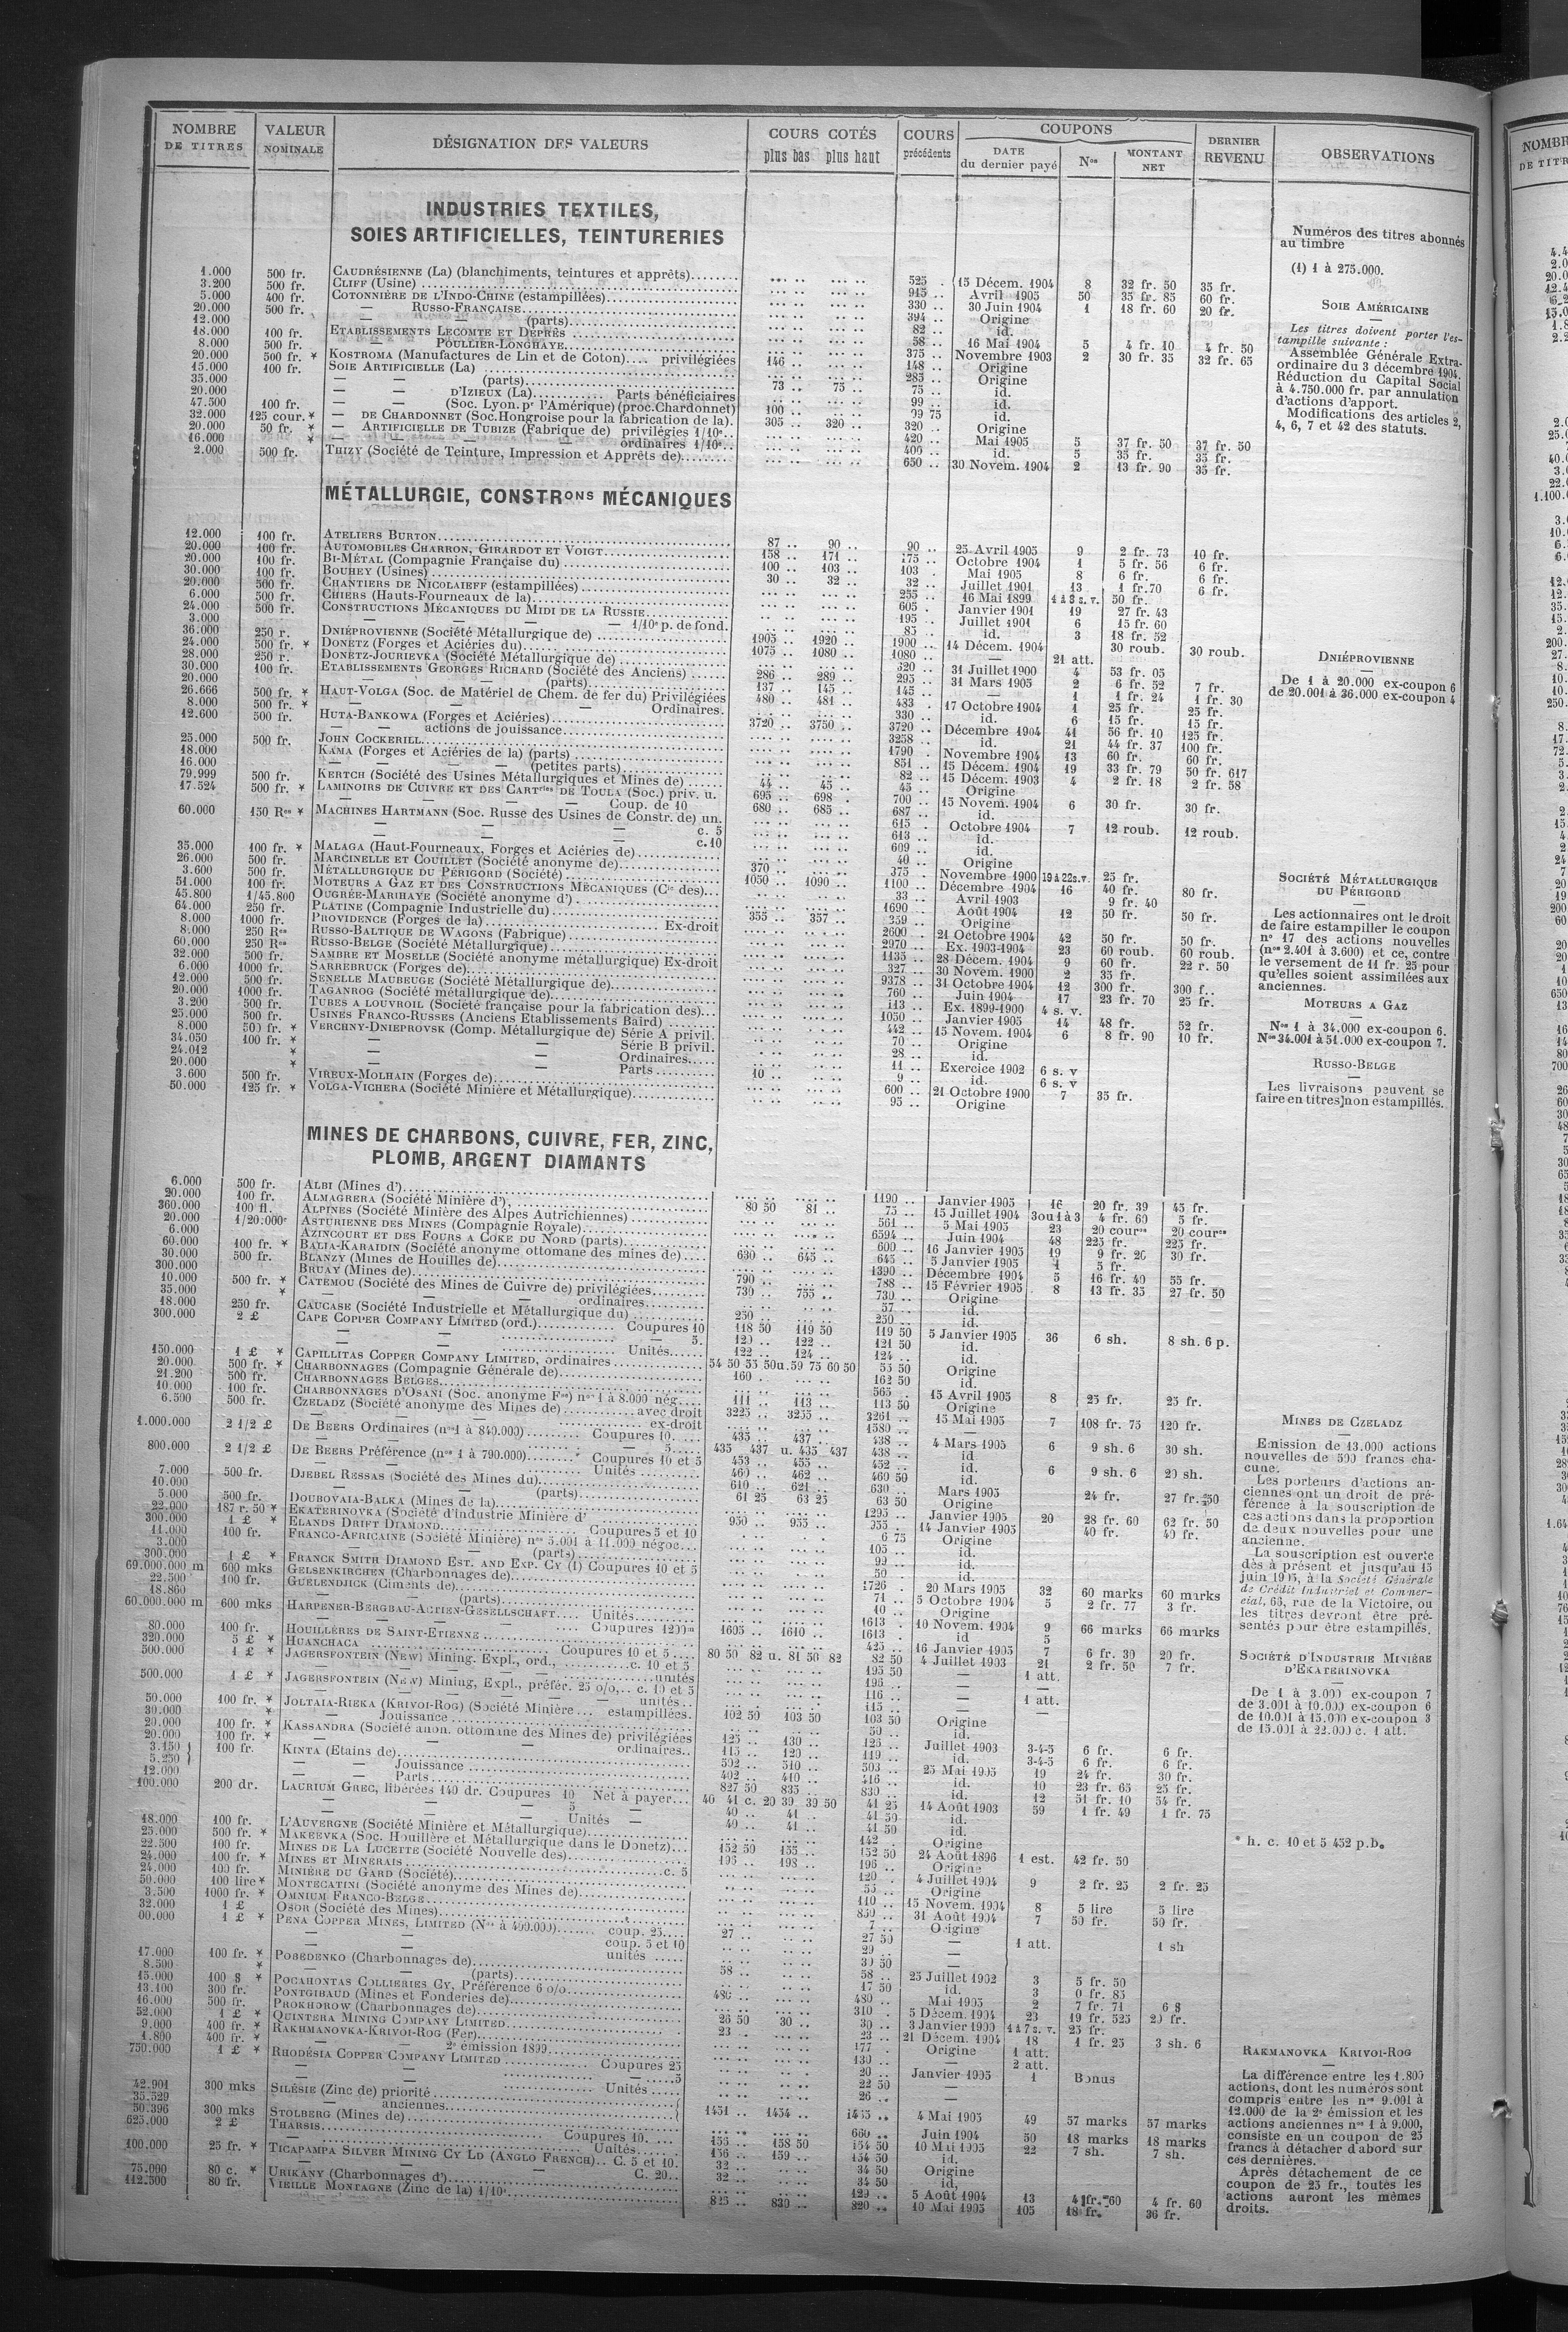 NOMBRE DE TITRES
VALEUR NOMINALE
DÉSIGNATION DES VALEURS
COURS COTÉS
plus bas plus haut
COURS précédents
COUPONS
DATE du dernier payé
Nos
MONTANT NET
DERNIER REVENU
OBSERVATIONS
INDUSTRIES TEXTILES,
SOIES ARTIFICIELLES, TEINTURERIES
1.000 500 fr. CAUDRÉSIENNE (La) (blanchiments, teintures et apprêts) 525 15 Décem. 1904 8 32 fr. 50 35 fr.
3.200 500 fr. CLIFF (Usine) 915 Avril 1905 50 35 fr. 85 60 fr.
5.000 400 fr. COTONNIÈRE DE L'INDO-CHINE (estampillées) 330 30 Juin 1904 1 18 fr. 60 20 fr.
20.000 500 fr. — RUSSO-FRANÇAISE 394 Origine
12.000 — — (parts) 82 id.
18.000 100 fr. ETABLISSEMENTS LECOMTE ET DEPRÈS 58 16 Mai 1904 5 4 fr. 10 4 fr. 50
8.000 500 fr. — POULLIER-LONGHAYE 375 Novembre 1903 2 30 fr. 35 32 fr. 65
20.000 500 fr. * KOSTROMA (Manufactures de Lin et de Coton) privilégiées 146 148 Origine
15.000 100 fr. SOIE ARTIFICIELLE (La) 285 Origine
35.000 — — (parts) 73 75 75 id.
20.000 — D'IZIEUX (La) Parts bénéficiaires 99 id.
47.500 100 fr. — (Soc. Lyon. pr l'Amérique) (proc. Chardonnet) 100 99 75 id.
32.000 125 cour. * — DE CHARDONNET (Soc. Hongroise pour la fabrication de la) 305 320 320 Origine
20.000 50 fr. * — ARTIFICIELLE DE TUBIZE (Fabrique de) privilégies 1/10e 420 Mai 1905 5 37 fr. 50 37 fr. 50
16.000 * — — — ordinaires 1/10e 400 id. 5 35 fr. 35 fr.
2.000 500 fr. THIZY (Société de Teinture, Impression et Apprêts de) 650 30 Novem. 1904 2 13 fr. 90 35 fr.
Numéros des titres abonnés
au timbre
(1) 1 à 275.000.
SOIE AMÉRICAINE
Les titres doivent porter l'es-
tampille suivante :
Assemblée Générale Extra-
ordinaire du 3 décembre 1904.
Réduction du Capital Social
à 4.750.000 fr. par annulation
d'actions d'apport.
Modifications des articles 2,
4, 6, 7 et 42 des statuts.
MÉTALLURGIE, CONSTRons MÉCANIQUES
12.000 100 fr. ATELIERS BURTON 87 90 90 25 Avril 1905 9 2 fr. 73 10 fr.
20.000 100 fr. AUTOMOBILES CHARRON, GIRARDOT ET VOIGT 158 171 175 Octobre 1904 1 5 fr. 56 6 fr.
20.000 100 fr. BI-MÉTAL (Compagnie Française du) 100 103 103 Mai 1905 8 6 fr. 6 fr.
30.000 100 fr. BOUHEY (Usines) 30 32 32 Juillet 1901 13 1 fr. 70 6 fr.
20.000 500 fr. CHANTIERS DE NICOLAIEFF (estampillées) 255 16 Mai 1899 4 à 8 s. v. 50 fr.
6.000 500 fr. CHIERS (Hauts-Fourneaux de la) 605 Janvier 1901 19 27 fr. 43
24.000 500 fr. CONSTRUCTIONS MÉCANIQUES DU MIDI DE LA RUSSIE 195 Juillet 1901 6 15 fr. 60
3.000 — — 1/10e p. de fond. 85 id. 3 18 fr. 52
36.000 250 r. DNIÉPROVIENNE (Société Métallurgique de) 1905 1920 1900 14 Décem. 1904 30 roub. 30 roub.
24.000 500 fr. * DONETZ (Forges et Aciéries du) 1075 1080 1080 — 21 att.
28.000 250 r. DONETZ-JOURIEVKA (Société Métallurgique de) 320 31 Juillet 1900 4 53 fr. 05
30.000 100 fr. ETABLISSEMENTS GEORGES RICHARD (Société des Anciens) 286 289 295 31 Mars 1905 2 6 fr. 52 7 fr.
20.000 — — (parts) 137 145 145 — 1 1 fr. 24 1 fr. 30
26.666 500 fr. * HAUT-VOLGA (Soc. de Matériel de Chem. de fer du) Privilégiées 480 481 483 17 Octobre 1904 1 25 fr. 25 fr.
8.000 500 fr. * — — Ordinaires 330 id. 6 15 fr. 15 fr.
12.600 500 fr. HUTA-BANKOWA (Forges et Aciéries) 3720 3750 3720 Décembre 1904 41 56 fr. 10 125 fr.
— actions de jouissance 3258 id. 21 44 fr. 37 100 fr.
25.000 500 fr. JOHN COCKERILL 1790 Novembre 1904 13 60 fr. 60 fr.
18.000 KAMA (Forges et Aciéries de la) (parts) 851 15 Décem. 1904 19 33 fr. 79 50 fr. 617
16.000 — — — (petites parts) 82 15 Décem. 1903 4 2 fr. 18 2 fr. 58
79.999 500 fr. KERTCH (Société des Usines Métallurgiques et Mines de) 44 45 45 Origine
17.524 500 fr. * LAMINOIRS DE CUIVRE ET DES CARTries DE TOULA (Soc.) priv. u. 695 698 700 15 Novem. 1904 6 30 fr. 30 fr.
— — Coup. de 10 680 685 687 id.
60.000 150 Rou * MACHINES HARTMANN (Soc. Russe des Usines de Constr. de) un. 615 Octobre 1904 7 12 roub. 12 roub.
— — — c. 5 613 id.
— — — c. 10 609 id.
35.000 100 fr. * MALAGA (Haut-Fourneaux, Forges et Aciéries de) 40 Origine
26.000 500 fr. MARCINELLE ET COUILLET (Société anonyme de) 370 375 Novembre 1900 19 à 22 s.v. 25 fr.
3.600 500 fr. MÉTALLURGIQUE DU PÉRIGORD (Société) 1050 1090 1100 Décembre 1904 16 40 fr. 80 fr.
51.000 100 fr. MOTEURS A GAZ ET DES CONSTRUCTIONS MÉCANIQUES (Cie des) 33 Avril 1903 9 fr. 40
45.800 1/45.800 OUGRÉE-MARIHAYE (Société anonyme d') 1690 Août 1904 12 50 fr. 50 fr.
64.000 250 fr. PLATINE (Compagnie Industrielle du) 355 357 359 Origine
8.000 1000 fr. PROVIDENCE (Forges de la) Ex-droit 2600 21 Octobre 1904 42 50 fr. 50 fr.
8.000 250 Rou RUSSO-BALTIQUE DE WAGONS (Fabrique) 2970 Ex. 1903-1904 23 60 roub. 60 roub.
60.000 250 Rou RUSSO-BELGE (Société Métallurgique) 1135 28 Décem. 1904 9 60 fr. 22 r. 50
32.000 500 fr. SAMBRE ET MOSELLE (Société anonyme métallurgique) Ex-droit 327 30 Novem. 1900 2 35 fr.
6.000 1000 fr. SARREBRUCK (Forges de) 9378 31 Octobre 1904 12 300 fr. 300 f.
12.000 500 fr. SENELLE MAUBEUGE (Société Métallurgique de) 760 Juin 1904 17 23 fr. 70 25 fr.
20.000 1000 fr. TAGANROG (Société métallurgique de) 113 Ex. 1899-1900 4 s. v.
3.200 500 fr. TUBES A LOUVROIL (Société française pour la fabrication des) 1050 Janvier 1905 14 48 fr. 52 fr.
25.000 500 fr. USINES FRANCO-RUSSES (Anciens Etablissements Baird) 442 15 Novem. 1904 6 8 fr. 90 10 fr.
8.000 500 fr. * VERCHNY-DNIEPROVSK (Comp. Métallurgique de) Série A privil. 70 Origine
34.050 100 fr. * — — Série B privil. 28 id.
24.012 * — — Ordinaires 11 Exercice 1902 6 s. v
20.000 * — — Parts 10 9 id. 6 s. v
3.600 500 fr. VIREUX-MOLHAIN (Forges de) 600 21 Octobre 1900 7 35 fr.
50.000 125 fr. * VOLGA-VICHERA (Société Minière et Métallurgique) 95 Origine
DNIÉPROVIENNE
De 1 à 20.000 ex-coupon 6
de 20.001 à 36.000 ex-coupon 4
SOCIÉTÉ MÉTALLURGIQUE
DU PÉRIGORD
Les actionnaires ont le droit
de faire estampiller le coupon
n° 17 des actions nouvelles
(nos 2.401 à 3.600) et ce, contre
le versement de 11 fr. 25 pour
qu'elles soient assimilées aux
anciennes.
MOTEURS A GAZ
Nos 1 à 34.000 ex-coupon 6.
Nos 34.001 à 51.000 ex-coupon 7.
RUSSO-BELGE
Les livraisons peuvent se
faire en titres non estampillés.
MINES DE CHARBONS, CUIVRE, FER, ZINC,
PLOMB, ARGENT DIAMANTS
6.000 500 fr. ALBI (Mines d') 1190 Janvier 1905 16 20 fr. 39 45 fr.
20.000 100 fr. ALMAGRERA (Société Minière d') 80 50 81 75 15 Juillet 1904 3 ou 1 à 3 4 fr. 60 5 fr.
360.000 100 fl. ALPINES (Société Minière des Alpes Autrichiennes) 561 5 Mai 1905 23 20 cours 20 cours
20.000 1/20.000e ASTURIENNE DES MINES (Compagnie Royale) 6594 Juin 1904 48 225 fr. 225 fr.
6.000 AZINCOURT ET DES FOURS A COKE DU NORD (parts) 600 16 Janvier 1905 19 9 fr. 26 30 fr.
60.000 100 fr. * BALIA-KARAIDIN (Société anonyme ottomane des mines de) 630 645 645 5 Janvier 1905 4 5 fr.
30.000 500 fr. BLANZY (Mines de Houilles de) 1390 Décembre 1904 5 16 fr. 40 55 fr.
300.000 BRUAY (Mines de) 790 788 15 Février 1905 8 13 fr. 35 27 fr. 50
10.000 500 fr. * CATEMOU (Société des Mines de Cuivre de) privilégiées 730 755 730 Origine
35.000 * — — ordinaires 57 id.
18.000 250 fr. CAUCASE (Société Industrielle et Métallurgique du) 250 250 id.
300.000 2 £ CAPE COPPER COMPANY LIMITED (ord.) Coupures 10 118 50 119 50 119 50 5 Janvier 1905 36 6 sh. 8 sh. 6 p.
— — 5. 120 122 121 50 id.
— Unités 122 124 124 id.
150.000 1 £ * CAPILLITAS COPPER COMPANY LIMITED, ordinaires 54 50 55 50 u. 59 75 60 50 55 50 Origine
20.000 500 fr. * CHARBONNAGES (Compagnie Générale de) 160 162 50 id.
21.200 500 fr. CHARBONNAGES BELGES 565 15 Avril 1905 8 25 fr. 25 fr.
10.000 100 fr. CHARBONNAGES D'OSANI (Soc. anonyme Fse) nos 1 à 8.000 nég. 111 113 113 50 Origine
6.500 500 fr. CZELADZ (Société anonyme des Mines de) avec droit 3225 3255 3261 15 Mai 1905 7 108 fr. 75 120 fr.
— — ex-droit 1580
1.000.000 2 1/2 £ DE BEERS Ordinaires (nos 1 à 840.000) Coupures 10 435 437 438 4 Mars 1905 6 9 sh. 6 30 sh.
— — 5 435 437 u. 435 437 438 id.
800.000 2 1/2 £ DE BEERS Préférence (nos 1 à 790.000) Coupures 10 et 5 453 455 452 id. 6 9 sh. 6 20 sh.
— Unités 460 462 460 50 id.
7.000 500 fr. DJEBEL RESSAS (Société des Mines du) 610 621 630 Mars 1905 24 fr. 27 fr. 50
10.000 — — (parts) 61 25 63 25 63 50 Origine
5.000 500 fr. DOUBOVAIA-BALKA (Mines de la) 1295 Janvier 1905 20 28 fr. 60 62 fr. 50
22.000 187 r. 50 * EKATERINOVKA (Société d'industrie Minière d' 950 955 955 14 Janvier 1905 40 fr. 40 fr.
300.000 1 £ * ELANDS DRIFT DIAMOND Coupures 5 et 10 6 75 Origine
11.000 100 fr. FRANCO-AFRICAINE (Société Minière) nos 5.001 à 11.000 négoc. 105 id.
3.000 — — (parts) 99 id.
300.000 1 £ * FRANCK SMITH DIAMOND EST. AND EXP. CY (1) Coupures 10 et 5 50 id.
69.000.000 m 600 mks GELSENKIRCHEN (Charbonnages de) 1726 20 Mars 1905 32 60 marks 60 marks
22.500 100 fr. GUELENDJICK (Ciments de) 71 5 Octobre 1904 5 2 fr. 77 3 fr.
18.860 — (parts) 10 Origine
60.000.000 m 600 mks HARPENER-BERGBAU-ACTIEN-GESELLSCHAFT Unités 1613 10 Novem. 1904 9 66 marks 66 marks
— — Coupures 1200m 1605 1610 1613 id 5
80.000 100 fr. HOUILLÈRES DE SAINT-ETIENNE 425 16 Janvier 1905 7 6 fr. 30 20 fr.
320.000 5 £ * HUANCHACA Coupures 10 et 5 80 50 82 u. 81 50 82 82 50 4 Juillet 1903 21 2 fr. 50 7 fr.
500.000 1 £ * JAGERSFONTEIN (NEW) Mining. Expl., ord., c. 10 et 5 195 50 — 1 att.
— unités 196 —
500.000 1 £ * JAGERSFONTEIN (NEW) Mining, Expl., préfér. 25 o/o, c. 10 et 5 116 — 1 att.
— — unités 115 —
50.000 100 fr. * JOLTAIA-RIEKA (KRIVOI-ROG) (Société Minière estampillées. 102 50 103 50 103 50 Origine
30.000 * — Jouissance 50 id.
20.000 100 fr. * KASSANDRA (Société anon. ottomane des Mines de) privilégiées 125 130 126 Juillet 1903 3-4-5 6 fr. 6 fr.
20.000 100 fr. * — — ordinaires 115 120 119 id. 3-4-5 6 fr. 6 fr.
3.150 } 100 fr. KINTA (Etains de) 502 510 503 25 Mai 1905 19 24 fr. 30 fr.
5.250 } — Jouissance 402 410 416 id. 10 23 fr. 65 25 fr.
12.000 — Parts 827 50 835 830 id. 12 51 fr. 10 54 fr.
100.000 200 dr. LAURIUM GREC, libérées 140 dr. Coupures 10 Net à payer 40 41 c. 20 39 39 50 41 25 14 Août 1903 59 1 fr. 49 1 fr. 75
— — 5 — 40 41 41 50 id.
— — Unités — 40 41 41 50 id.
18.000 100 fr. L'AUVERGNE (Société Minière et Métallurgique) 142 Origine
25.000 500 fr. * MAKEEVKA (Soc. Houillère et Métallurgique dans le Donetz) 152 50 155 152 50 24 Août 1896 1 est. 42 fr. 50
22.500 100 fr. MINES DE LA LUCETTE (Société Nouvelle des) 195 198 196 Origine
24.000 100 fr. * MINES ET MINERAIS c. 5 120 4 Juillet 1904 9 2 fr. 25 2 fr. 25
24.000 100 fr. MINIÈRE DU GARD (Société) 55 Origine
50.000 100 lire * MONTECATINI (Société anonyme des Mines de) 110 15 Novem. 1904 8 5 lire 5 lire
3.500 1000 fr. * OMNIUM FRANCO-BELGE 850 31 Août 1904 7 50 fr. 50 fr.
32.000 1 £ OSOR (Société des Mines) 7 Origine
00.000 1 £ * PENA COPPER MINES, LIMITED (Nos à 400.000) coup. 25 27 27 50 — 1 att. 1 sh
— — coup. 5 et 10 29 —
— — unités 30 50 —
17.000 100 fr. * POBEDENKO (Charbonnages de) 58 58 25 Juillet 1902 3 5 fr. 50
8.500 * — (parts) 17 50 id. 3 0 fr. 85
15.000 100 $ * POCAHONTAS COLLIERIES CY, Préférence 6 o/o 480 480 Mai 1905 2 7 fr. 71 6 $
13.100 300 fr. PONTGIBAUD (Mines et Fonderies de) 310 5 Décem. 1904 23 19 fr. 525 20 fr.
16.000 500 fr. PROKHOROW (Charbonnages de) 26 50 30 30 3 Janvier 1900 4 à 7 s. v. 25 fr.
52.000 1 £ * QUINTERA MINING COMPANY LIMITED 23 23 21 Décem. 1904 18 1 fr. 25 3 sh. 6
9.000 400 fr. * RAKHMANOVKA-KRIVOI-ROG (Fer) 177 Origine 1 att.
1.800 400 fr. * — — 2e émission 1899 130 — 2 att.
750.000 1 £ * RHODÉSIA COPPER COMPANY LIMITED Coupures 25 20 Janvier 1905 1 Bonus
— — 5 22 50 —
— Unités 26 —
42.901 300 mks SILÉSIE (Zinc de) priorité 1451 1454 1455 4 Mai 1905 49 57 marks 57 marks
35.529 — anciennes
50.396 300 mks STOLBERG (Mines de) 660 Juin 1904 50 18 marks 18 marks
625.000 2 £ THARSIS Coupures 10 155 158 50 154 50 10 Mai 1905 22 7 sh. 7 sh.
— Unités 156 159 154 50 id.
100.000 25 fr. * TICAPAMPA SILVER MINING CY LD (ANGLO FRENCH) C. 5 et 10. 32 34 50 Origine
— — C. 20 32 34 50 id,
75.000 80 c. * URIKANY (Charbonnages d') 129 5 Août 1904 13 4 fr. 60 4 fr. 60
112.500 80 fr. VIEILLE MONTAGNE (Zinc de la) 1/10e 825 830 820 10 Mai 1905 105 18 fr. 36 fr.
MINES DE CZELADZ
Emission de 13.000 actions
nouvelles de 500 francs cha-
cune.
Les porteurs d'actions an-
ciennes ont un droit de pré-
férence à la souscription de
ces actions dans la proportion
de deux nouvelles pour une
ancienne.
La souscription est ouverte
dès à présent et jusqu'au 15
juin 1905, à la Société Générale
de Crédit Industriel et Commer-
cial, 66, rue de la Victoire, ou
les titres devront être pré-
sentés pour être estampillés.
SOCIÉTÉ D'INDUSTRIE MINIÈRE
D'EKATERINOVKA
De 1 à 3.000 ex-coupon 7
de 3.001 à 10.000 ex-coupon 6
de 10.001 à 15.000 ex-coupon 3
de 15.001 à 22.000 c. 1 att.
* h. c. 10 et 5 452 p.b.
RAKMANOVKA KRIVOI-ROG
La différence entre les 1.800
actions, dont les numéros sont
compris entre les nos 9.001 à
12.000 de la 2e émission et les
actions anciennes nos 1 à 9.000,
consiste en un coupon de 25
francs à détacher d'abord sur
ces dernières.
Après détachement de ce
coupon de 25 fr., toutes les
actions auront les mêmes
droits.